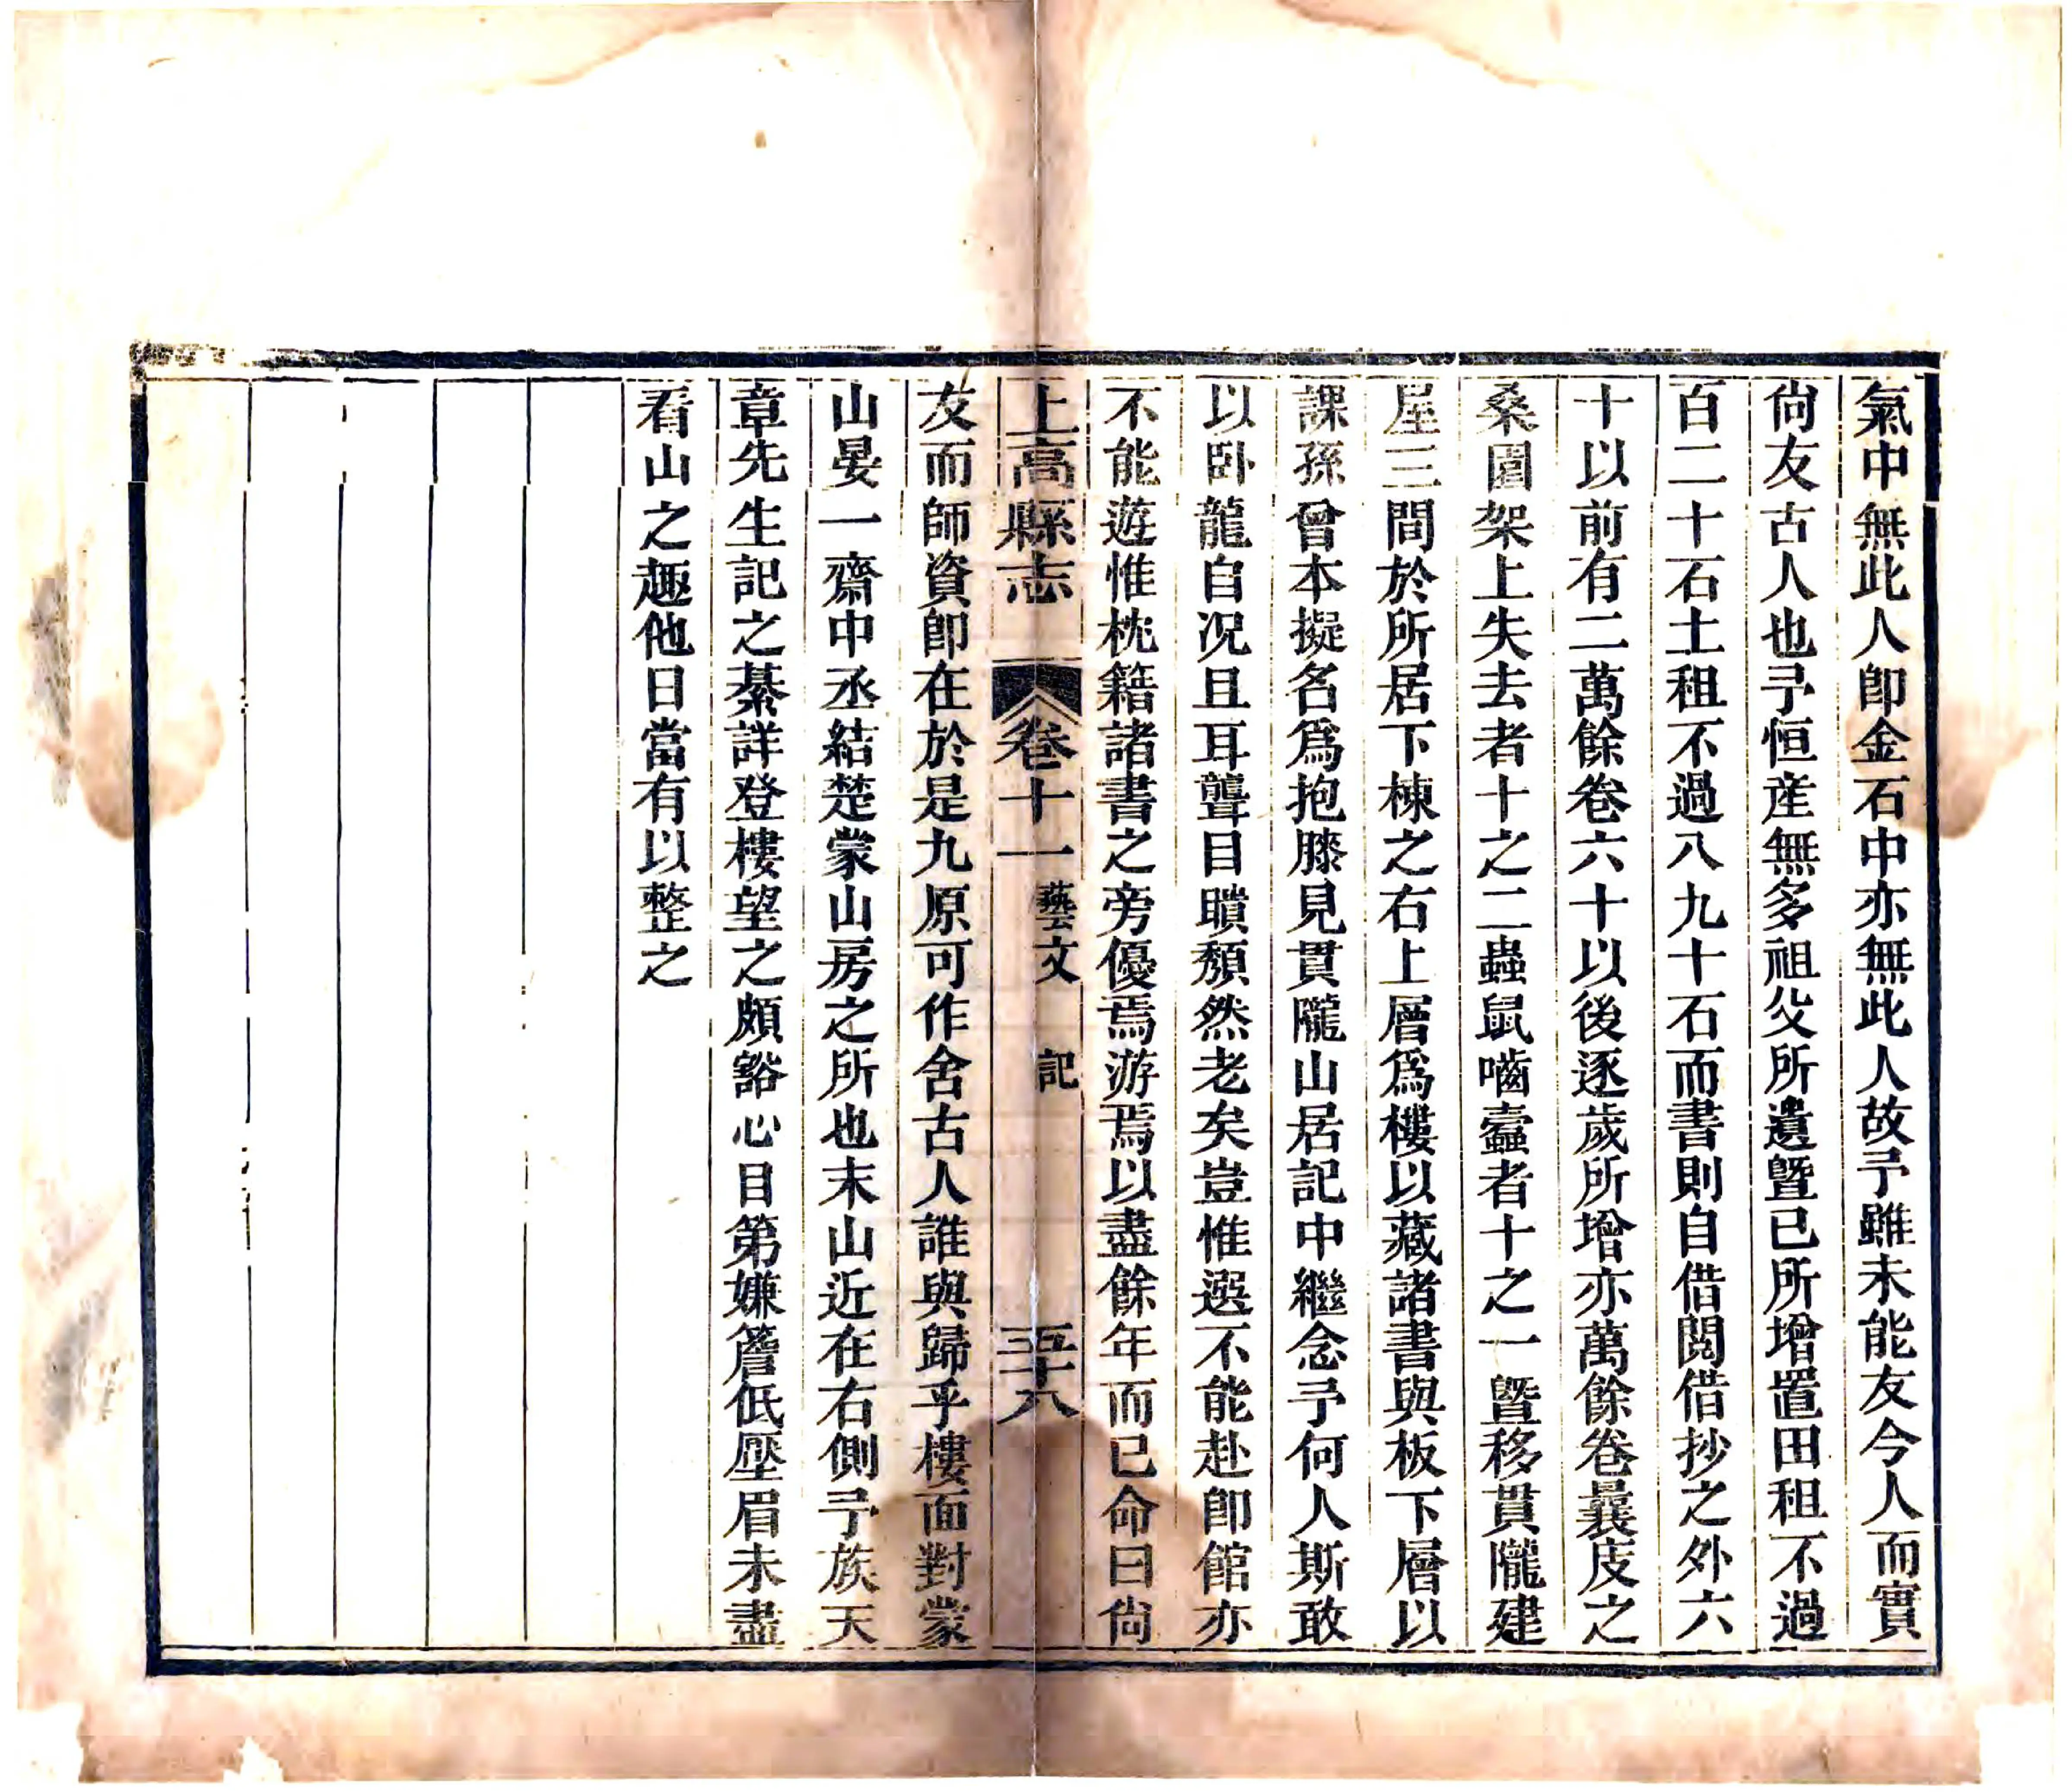 氣中無此人卽金石中亦無此人故予雖未能友今人而實
尙友古人也予恒產無多祖父所遺曁已所增置田租不過
百二十石土租不過八九十石而書則自借閱借抄之外六
十以前有二萬餘卷六十以後逐歲所增亦萬餘卷曩庋之
桑園架上失去者十之二蟲鼠嚙蠹者十之一曁移貫隴建
屋三間於所居下棟之右上層爲樓以藏諸書與板下層以
課孫曾本擬名爲抱膝見貫隴山居記中繼念予何人斯敢
以卧龍自况且耳聾目瞶頽然老矣豈惟選不能赴卽館亦
不能遊惟枕籍諸書之旁優焉游焉以盡餘年而已命曰尙
上高縣志 卷十一 藝文 記 五十八
友而師資卽在於是九原可作舍古人誰與歸乎樓面對蒙
山晏一齋中丞結楚蒙山房之所也末山近在右側予族天
章先生記之綦詳登樓望之頗豁心目第嫌簷低壓眉未盡
看山之趣他日當有以整之